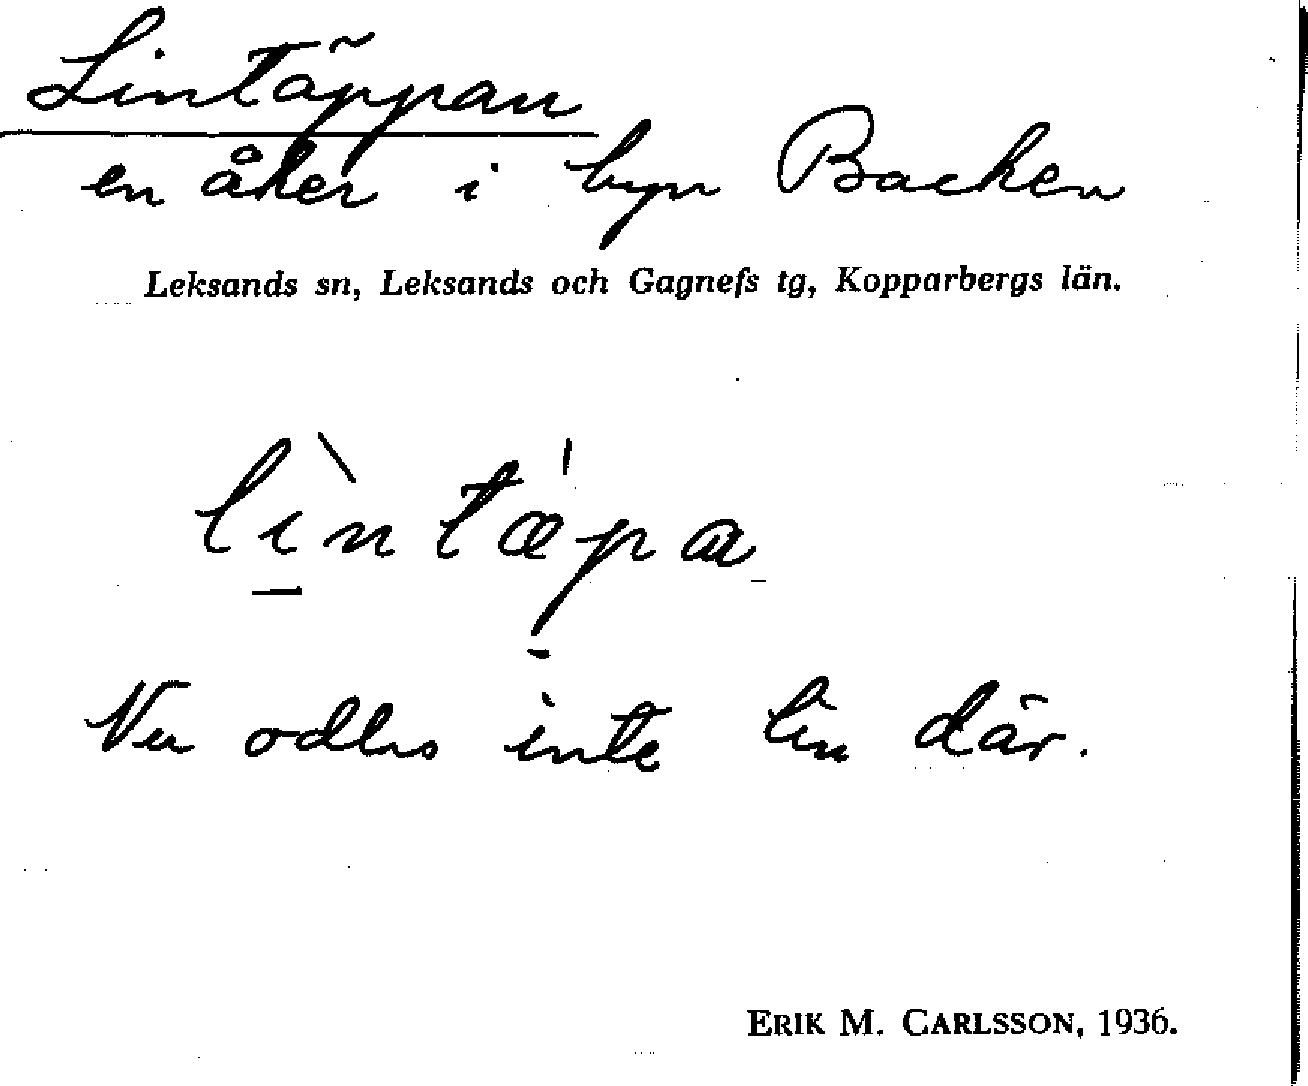 Lintäppan
en åker i byn Backen
Leksands sn, Leksands och Gagnefs tg, Kopparbergs län.
lìntæ̍pa
Nu odlas inte lin där.
ERIK M. CARLSSON, 1936.